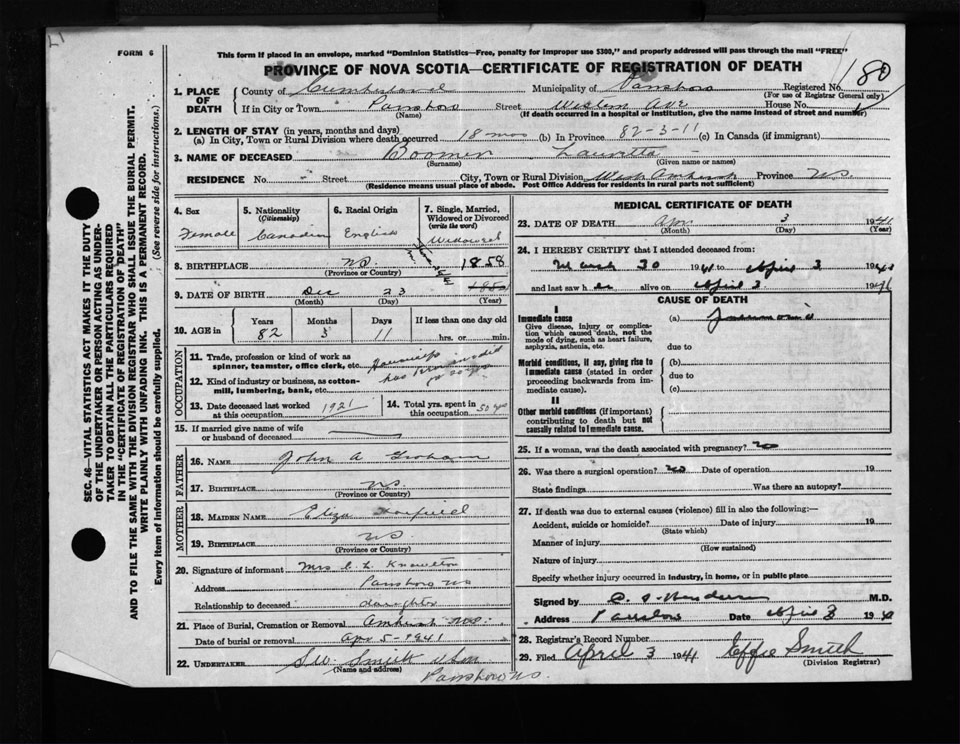 FORM 6
This form if placed in an envelope, marked "Dominion Statistics—Free, penalty for improper use $300," and properly addressed will pass through the mail "FREE"
PROVINCE OF NOVA SCOTIA—CERTIFICATE OF REGISTRATION OF DEATH
180
1. PLACE OF DEATH
County of Cumberland Municipality of Parrsboro Registered No.
(For use of Registrar General only)
If in City or Town Parrsboro Street Western Ave House No.
(Name) (If death occurred in a hospital or institution, give the name instead of street and number)
2. LENGTH OF STAY (in years, months and days)
(a) In City, Town or Rural Division where death occurred 18 mos (b) In Province 82-3-11 (c) In Canada (if immigrant)
3. NAME OF DECEASED Boomer Lauretta
(Surname) (Given name or names)
RESIDENCE No. - Street City, Town or Rural Division West Amherst Province N.S.
(Residence means usual place of abode. Post Office Address for residents in rural parts not sufficient)
4. Sex
Female
5. Nationality
(Citizenship)
Canadian
6. Racial Origin
English
7. Single, Married, Widowed or Divorced
(write the word)
Widowed
8. BIRTHPLACE NS
(Province or Country)
1858
9. DATE OF BIRTH Dec 23
(Month) (Day) (Year)
10. AGE in
Years Months Days If less than one day old
82 3 11 hrs. or min.
OCCUPATION
11. Trade, profession or kind of work as spinner, teamster, office clerk, etc. Housewife
12. Kind of industry or business, as cotton-mill, lumbering, bank, etc.
13. Date deceased last worked at this occupation 1921
14. Total yrs. spent in this occupation 50 yrs
15. If married give name of wife or husband of deceased
FATHER
16. NAME John A Graham
17. BIRTHPLACE NS
(Province or Country)
MOTHER
18. MAIDEN NAME Eliza
19. BIRTHPLACE NS
(Province or Country)
20. Signature of informant Mrs C. L. Knowlton
Address Parrsboro NS
Relationship to deceased daughter
21. Place of Burial, Cremation or Removal Amherst N.S.
Date of burial or removal Apr 5-1941
22. UNDERTAKER S.W. Smith & Son
(Name and address)
Parrsboro N.S.
MEDICAL CERTIFICATE OF DEATH
23. DATE OF DEATH Apr 3 1941
(Month) (Day) (Year)
24. I HEREBY CERTIFY that I attended deceased from:
March 30 1941 to April 3 194
and last saw h er alive on April 3 194
CAUSE OF DEATH
I
Immediate cause
Give disease, injury or complication which caused death, not the mode of dying, such as heart failure, asphyxia, asthenia, etc.
(a) Pneumonia
due to
Morbid conditions, if any, giving rise to immediate cause (stated in order proceeding backwards from immediate cause).
(b)
due to
(c)
II
Other morbid conditions (if important) contributing to death but not causally related to immediate cause.
25. If a woman, was the death associated with pregnancy? no
26. Was there a surgical operation? no Date of operation 19
State findings Was there an autopsy?
27. If death was due to external causes (violence) fill in also the following:—
Accident, suicide or homicide? Date of injury 19
(State which)
Manner of injury
(How sustained)
Nature of injury
Specify whether injury occurred in industry, in home, or in public place
Signed by M.D.
Address Parrsboro Date April 3 19
28. Registrar's Record Number
29. Filed April 3 1941 Effie Smith
(Division Registrar)
SEC. 46—VITAL STATISTICS ACT MAKES IT THE DUTY
OF THE UNDERTAKER OR PERSON ACTING AS UNDER-
TAKER TO OBTAIN ALL THE PARTICULARS REQUIRED
IN THE "CERTIFICATE OF REGISTRATION OF DEATH"
AND TO FILE THE SAME WITH THE DIVISION REGISTRAR WHO SHALL ISSUE THE BURIAL PERMIT.
WRITE PLAINLY WITH UNFADING INK. THIS IS A PERMANENT RECORD.
Every item of information should be carefully supplied. (See reverse side for instructions.)